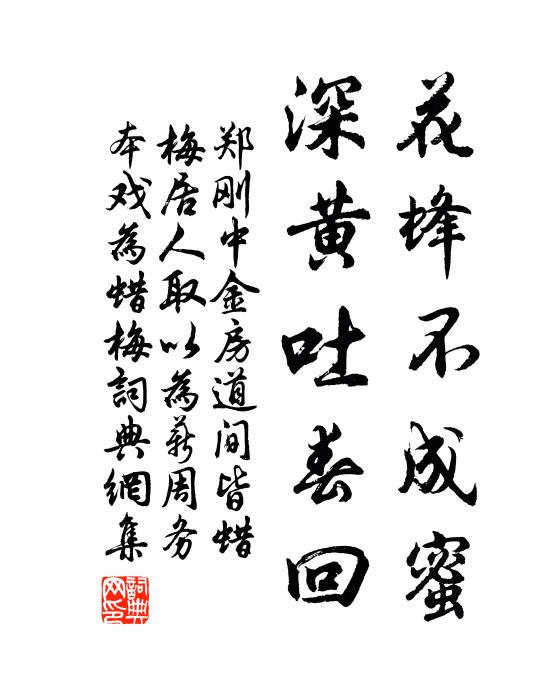 花蜂不成蜜
深黄吐春回
郑刚中金房道间皆蜡
梅居人取以為薪周务
本戏為蜡梅詞典網集
詞典網印